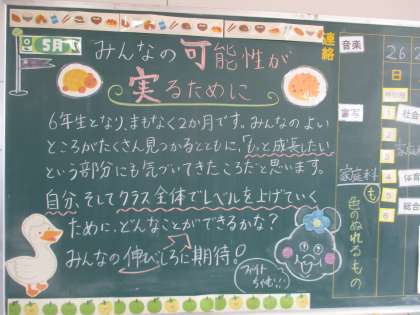 5月
みんなの可能性が
実るために
6年生となり、まもなく2か月です。みんなのよい
ところがたくさん見つかるとともに、"もっと成長したい"
という部分にも気づいてきたころだと思います。
自分、そしてクラス全体でレベルを上げていく
ために、どんなことができるかな?
みんなの伸びしろに期待!
ファイト
連絡
音楽
書写
家庭科
も
色のぬれるもの
26
日
1
社会
2
家庭
3
4
体育
5
6